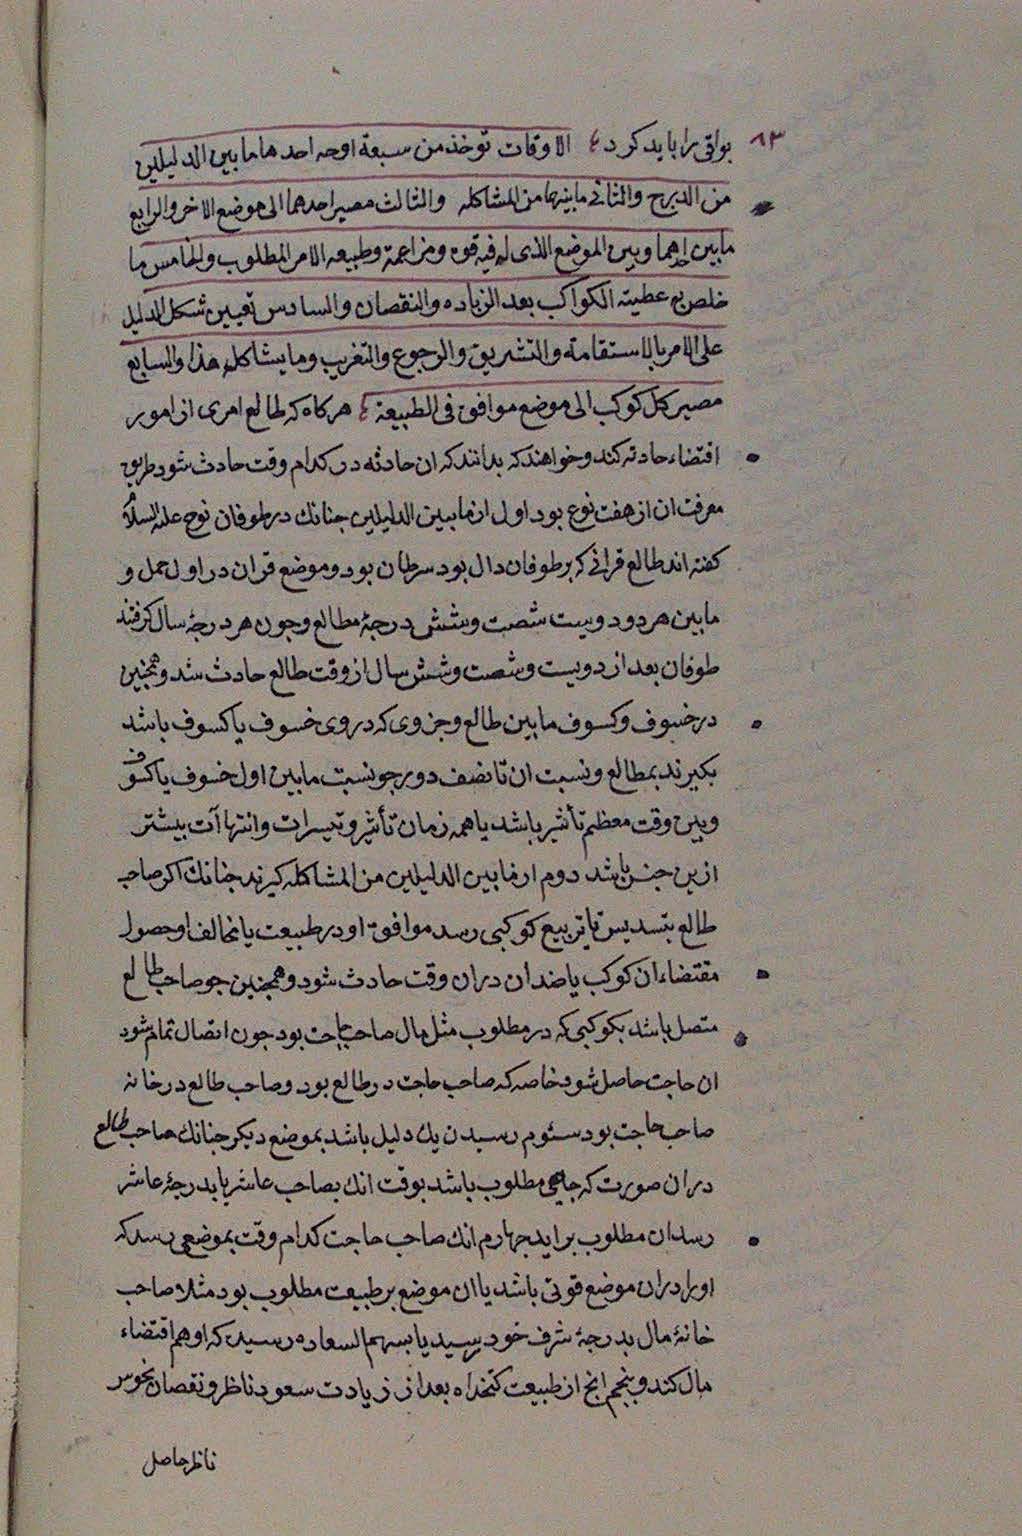 بواقی را باید کرد ٨٣ الاوقات توخذ من سبعة اوجه احدها ما بین الدلیلین
من الدریج والثانی ما بینهما من المشاکله والثالث مصیر احدهما الی موضع الاخر والرابع
ما بین احدهما وبین الموضع الذی له فیه قوه ومزاعمة وطبیعه الامر المطلوب والخامس ما
خلص به عطیته الکواکب بعد الزیاده والنقصان والسادس تعیین شکل الدلیل
علی الامر بالاستقامة والتشریق والرجوع والتغریب وما یشاکله هذا والسابع
مصیر کل کوکب الی موضع موافق فی الطبیعة هرکاه که طالع امری از امور
اقتضاء حادثه کند وخواهند که بدانند که ان حادثه در کدام وقت حادث شود طریق
معرفت ان از هفت نوع بود اول از ما بین الدلیلین جنانك در طوفان نوح علیه السلام
کفته اند طالع قرانی که بر طوفان دال بود سرطان بود وموضع قران در اول حمل و
ما بین هر دو دویست شصت وشش درجۀ مطالع وجون هر درجۀ سال کرفتند
طوفان بعد از دویست وشصت وشش سال از وقت طالع حادث شد وهمجنین
در خسوف وکسوف ما بین طالع وجزوی که در وی خسوف یا کسوف باشد
بکیرند بمطالع ونسبت ان تا نصف دور جو نسبت ما بین اول خسوف یا کسوف
وبین وقت معظم تأثیر باشد یا همه زمان تأثیر وتسیرات وانتهاآت بیشتر
ازین جنس باشد دوم از ما بین الدلیلین من المشاکله کیرند جنانك اکر صاحب
طالع بتسدیس یا تربیع کوکبی رسد موافق او در طبیعت یا مخالف او حصول
مقتضاء ان کوکب یا ضد ان دران وقت حادث شود وهمجنین جو صاحب طالع
متصل باشد بکوکبی که در مطلوب مثل مال صاحب حاجت بود جون اتصال تمام شود
ان حاجت حاصل شود خاصه که صاحب حاجت در طالع بود وصاحب طالع در خانه
صاحب حاجت بود سئوم رسیدن یك دلیل باشد بموضع دیکر جنانك صاحب طالع
دران صورت که جاهی مطلوب باشد بوقت انك بصاحب عاشر یا بدرجۀ عاشر
رسد ان مطلوب براید جهارم انك صاحب حاجت کدام وقت بموضعی رسد که
او را دران موضع قوتی باشد یا ان موضع بر طبیعت مطلوب بود مثلا صاحب
خانۀ مال بدرجۀ شرف خود رسید یا بسهم السعاده رسید که او هم اقتضاء
مال کند وبنجم انج از طبیعت کتخداه بعد از زیادت سعود ناظر ونقصان نحوس
ناظر حاصل